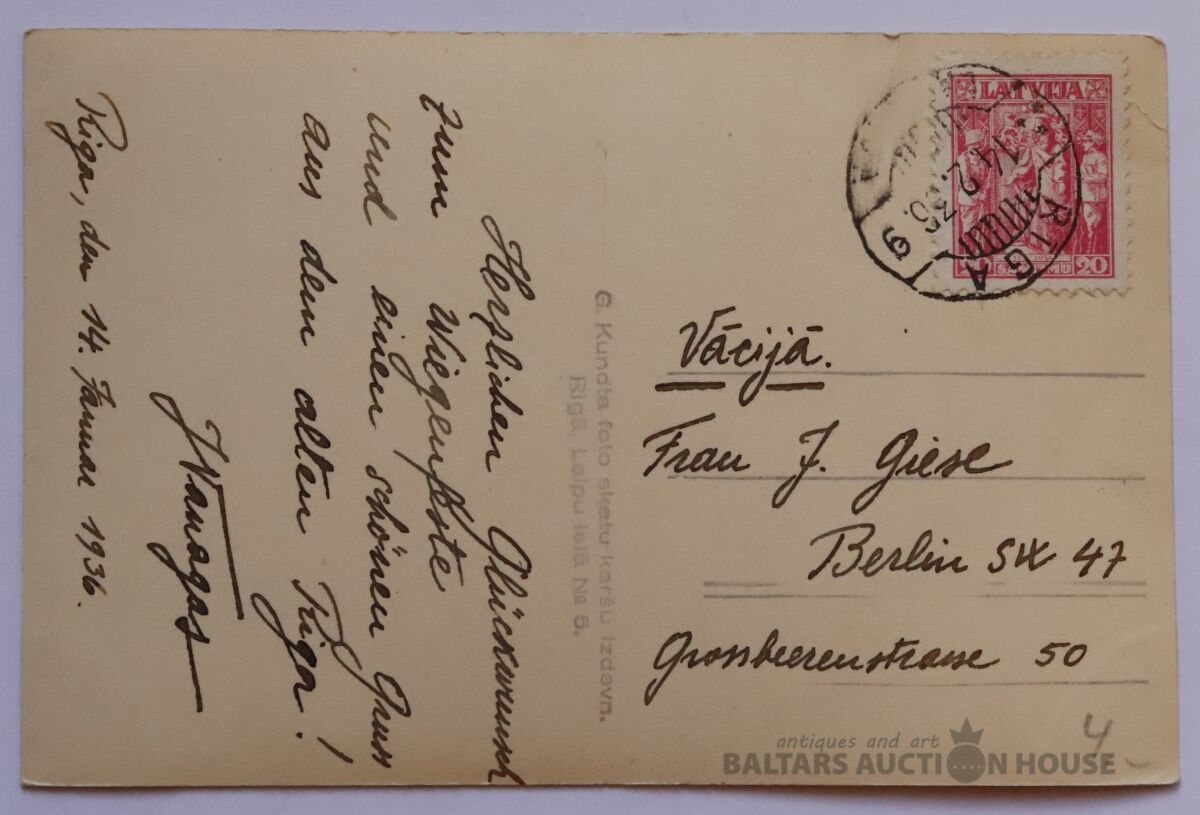 Herzlichen Glückwunsch
zum Wiegenfeste
und einen schönen Gruss
aus dem alten Riga!
JWanagas
Riga, den 14. Januar 1936.
G. Kundta foto skatu karšu izdevn.
Rīgā, Laipu ielā № 5.
LATVIJA
20 SANTIMU 20
RIGA 9
14.2.36.
Vācijā.
Frau J. Giese
Berlin SW 47
Grossbeerenstrasse 50
4
antiques and art
BALTARS AUCTION HOUSE